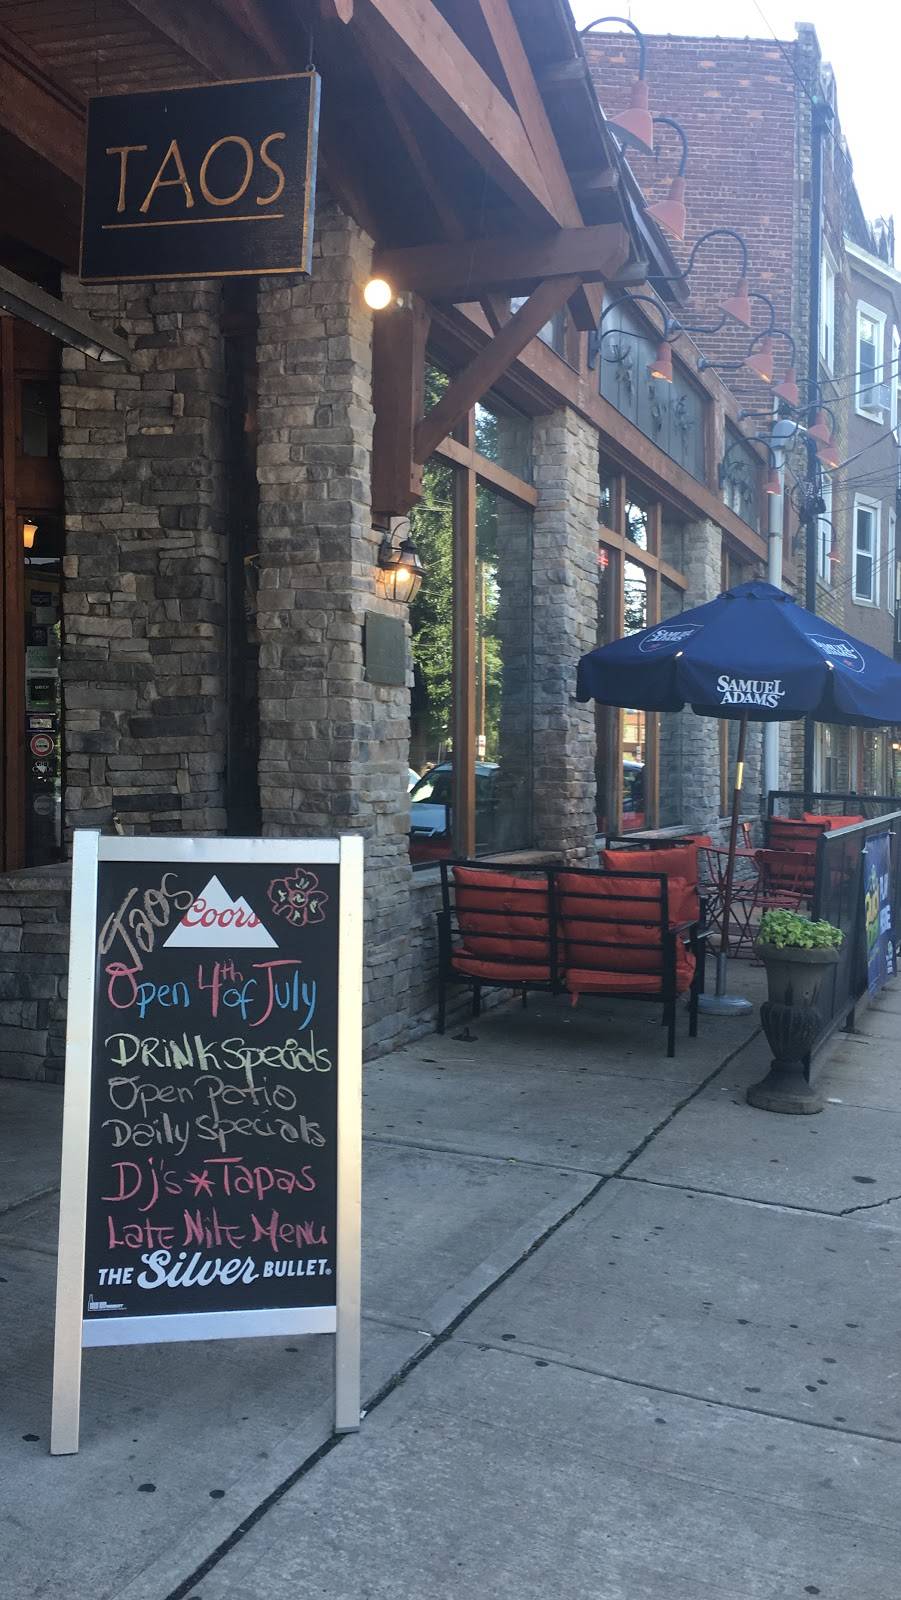 TAOS
SAMUEL
ADAMS
Taos
Coors
Open 4th of July
Drink Specials
Open Patio
Daily Specials
Dj's * Tapas
Late Nite Menu
THE Silver BULLET.